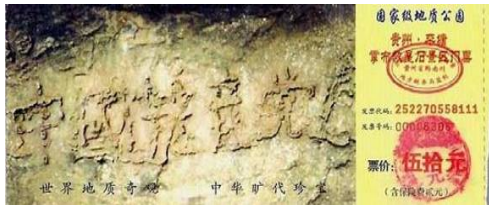 中國共産党亡
世界地质奇观 中华旷代珍宝
国家级地质公园
贵州·平塘
掌布藏字石景区门票
贵州省黔南州
发票代码: 252270558111
发票号码: 00008306
票价: 伍拾元
(含保险费贰元)